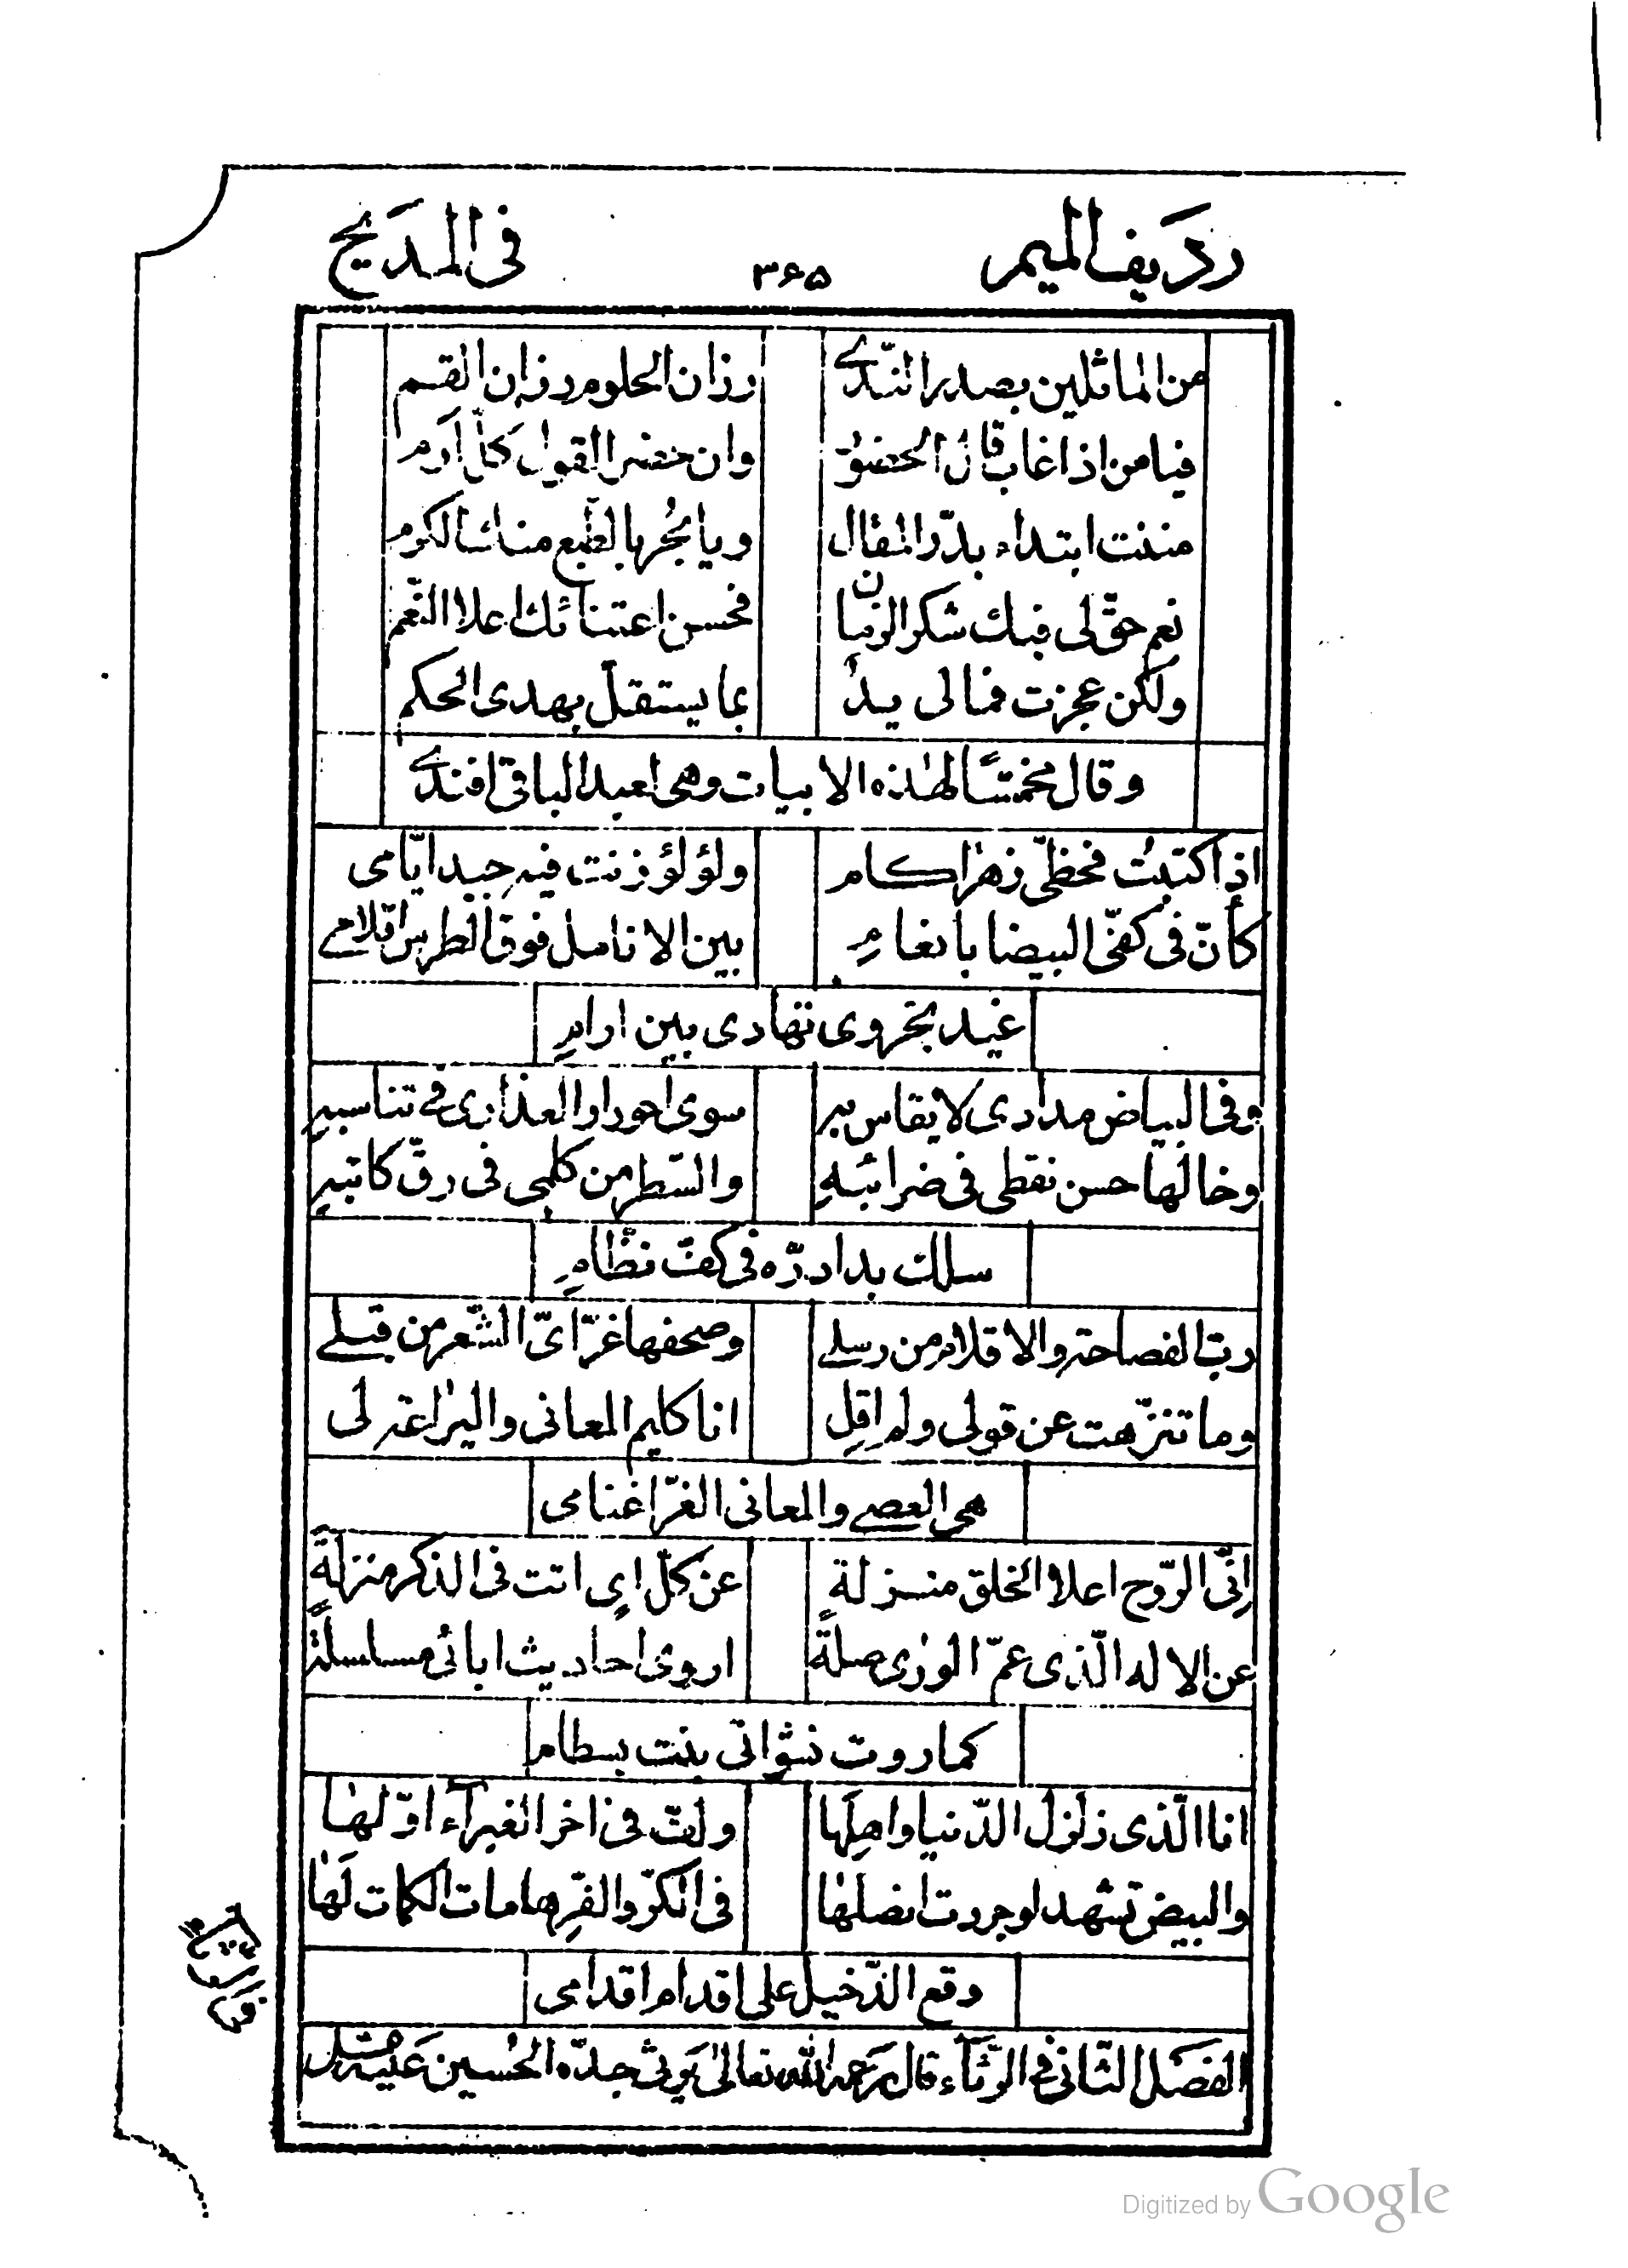 ردیف المیم ۳۶۵ فی المدیح
من الماثلین بصدر النّدے رزان الحلوم رزان القسم
فیا من اذا غاب قال الحضور وان حضر القول کلّ ارم
مننت ابتداء بدرّ المقال ویا بحُرها بالطبع منا شا الکرم
نعم حقّ لی فیك شکر الزمان فحسن اعتنآئك اعلا النّعم
ولکن عجزت فما لی یدٌ بما یستقلّ بهدی الحکم
وقال مخمّسًا لهٰذه الابیات وهی لعبد الباقی افندے
اذا کتبتُ فخطّی زهر اکمام ولؤلؤ زنت فیه جید ایّامی
کأنّ فی کفّی البیضا بانعامِ بین الانامل فوق الطرس اقلامے
غید بحزوی تهادی بین ارامِ
وفی البیاض مدادی لا یقاس به سوی احورار العذاری فی تناسبهِ
وخالها حسن نقطی فی ضرائبهِ والسّطر من کلمی فی رقّ کاتبهِ
سلك بدا درّه فی کفّ نظّامِ
ربّ الفصاحة والاقلام من رسلے وصحفها غرّ ایّ الشّعر من قبلے
وما تنزّهت عن قولی ولم اقلِ انا کلیم المعانی والیراعة لی
هی العصے والمعانی الغرّ اغنامی
اِنّی الرّوح اعلا الخلق منزلةً عن کلّ ایٍ اتت فی الذکر منزلةً
عن الاله الّذی عمّ الوری صلةً اروی احادیث ابائی مسلسلةً
کما روت نشواتی بنت بسطام
انا الّذی زلزل الدّنیا واهلَها ولفّ فی اخر الغبرآء اوّلها
والبیض تشهد لو جردت انصلها فی الکرّ والفرّ هامات الکمات لها
وقع الدّخیل علی اقدام اقدامی
الفصل الثّانی فی الرّثآء قال رحمه الله تعالیٰ یرثی جدّه الحُسین عَلیه